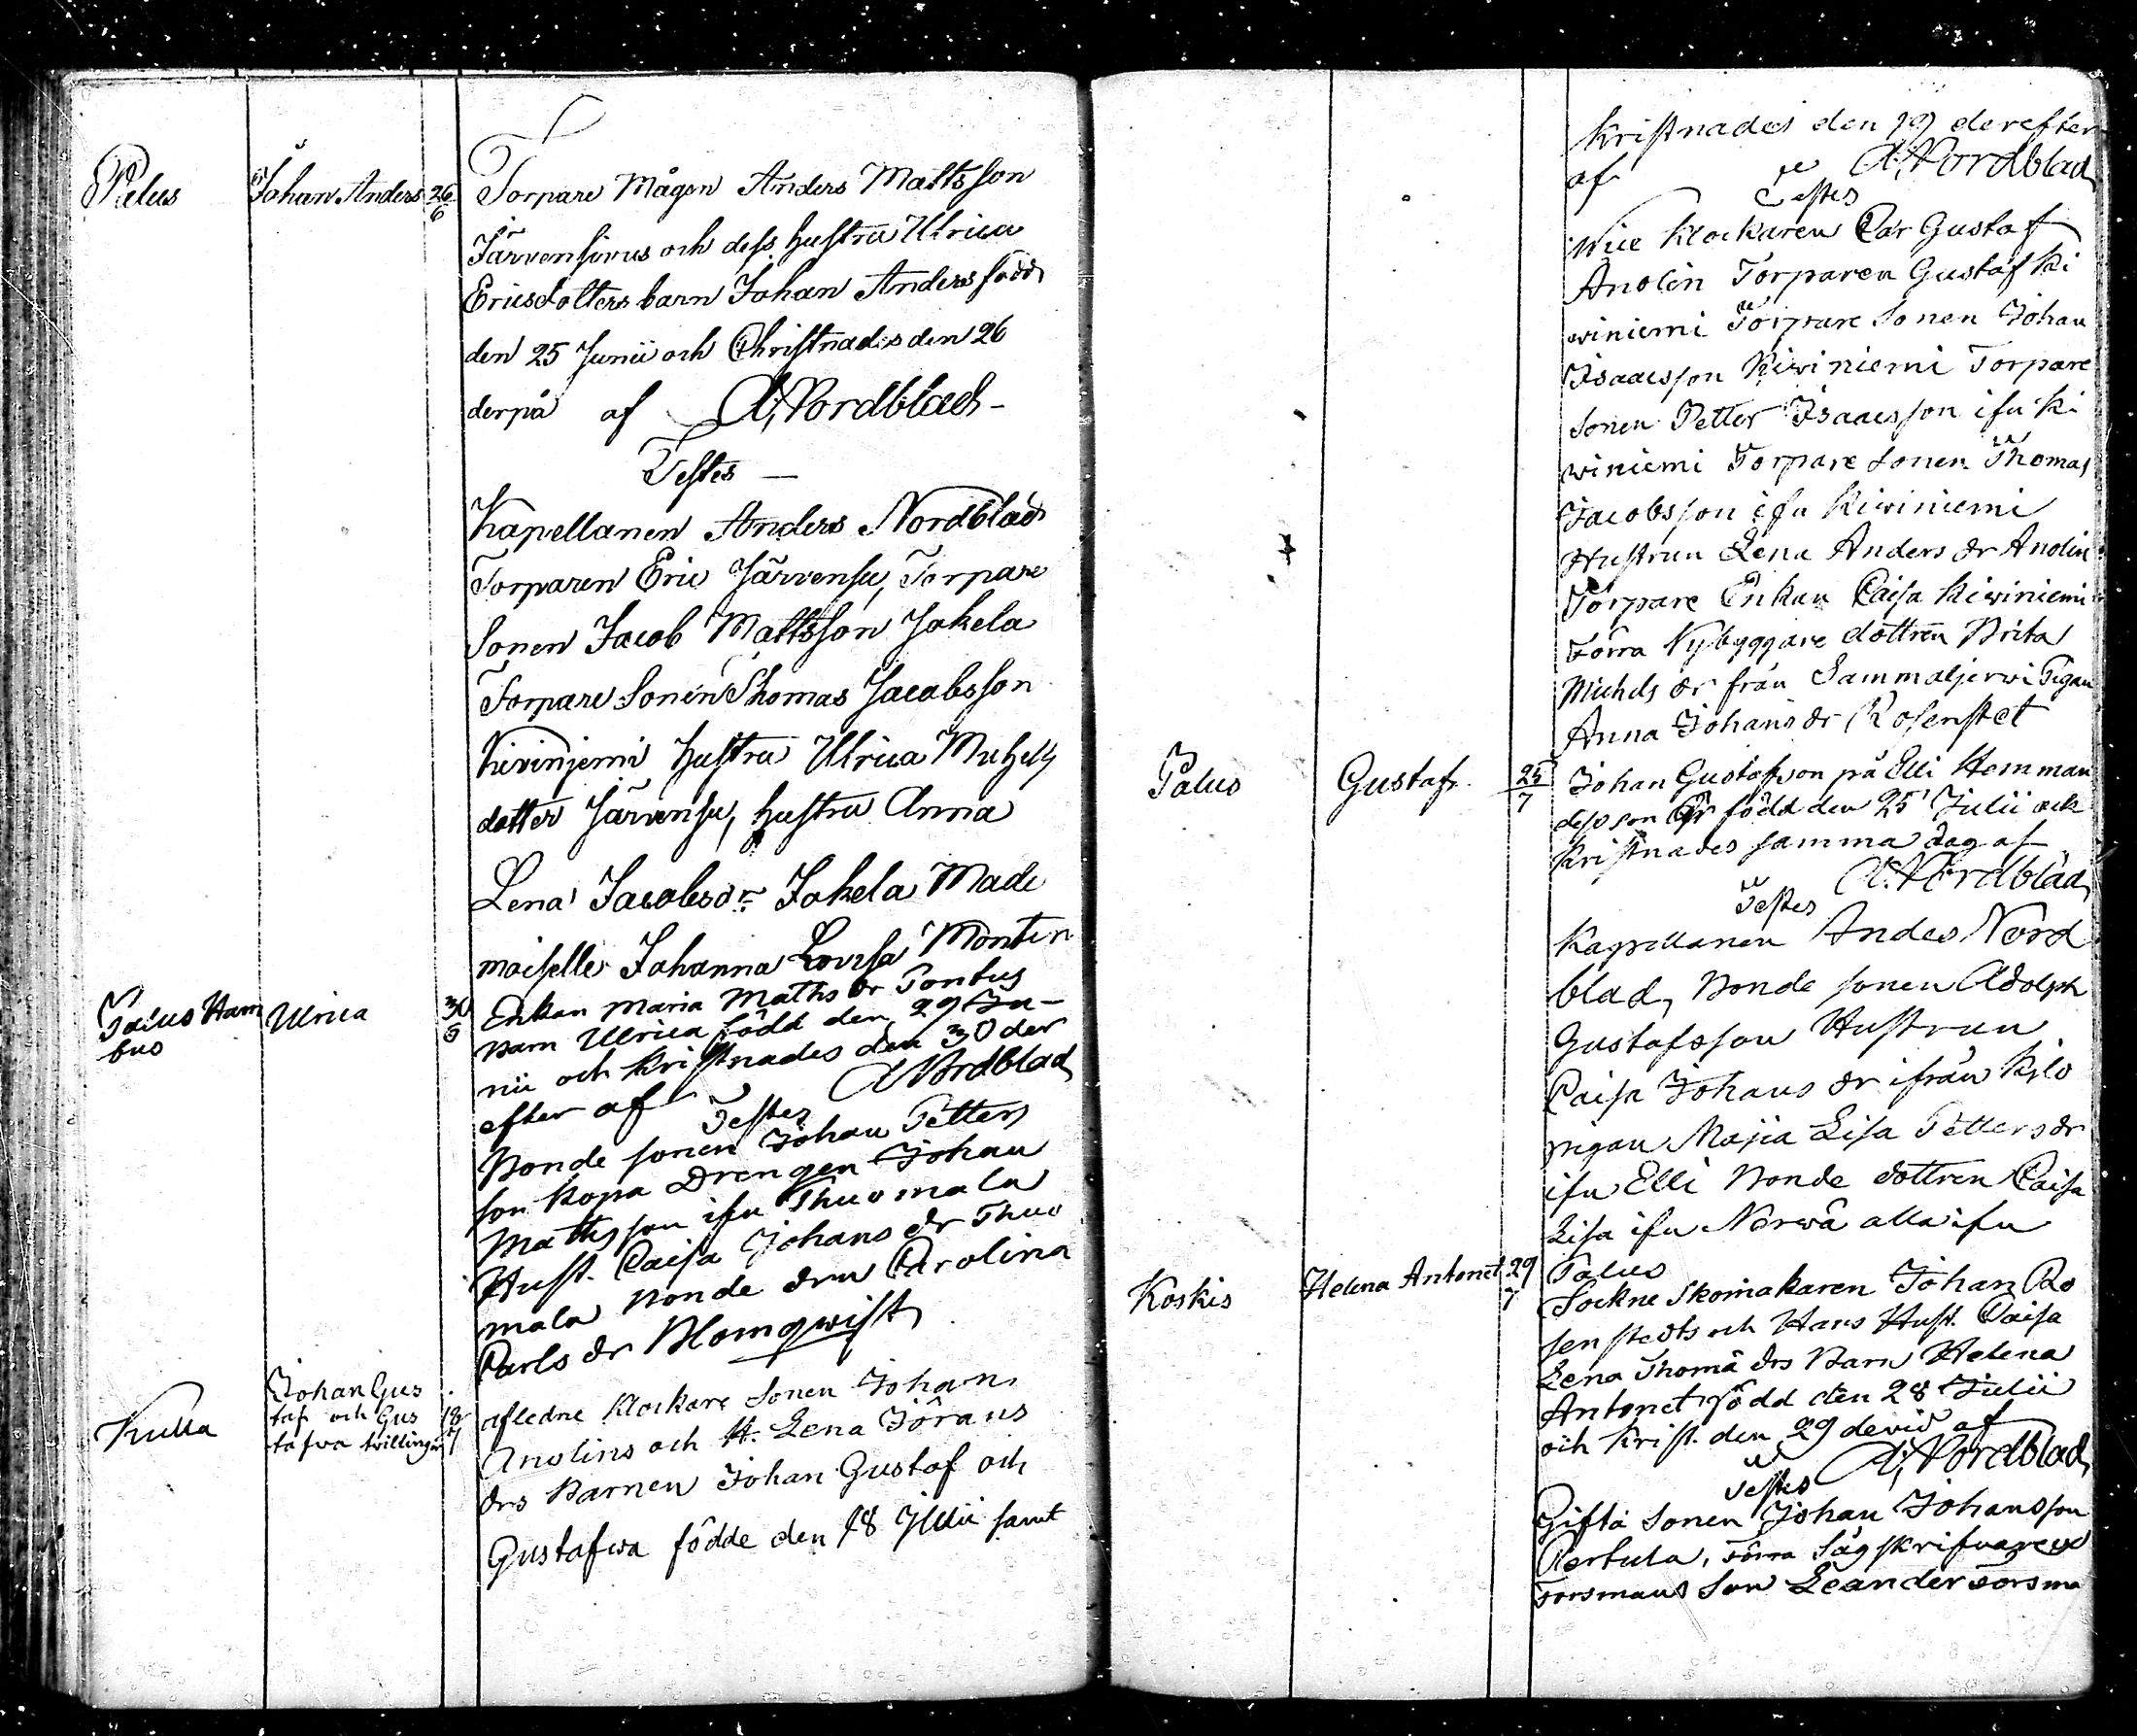 Palus
Johan Anders
26
6
Torpare Mågen Anders Mattsson
Järvensivus och dess hustru Ulrica
Ericsdotters barn Johan Anders född
den 25 Junii och Christnades den 26
derpå af A, Nordblad
Testes
Kapellanen Anders Nordblad
Torparen Eric Järvensu, Torpare
Sonen Jacob Mattsson Jakela
Torpare Sonen Thomas Jacobsson
Kivinjemi hustru Ulrica Michels
dotter Järvensu, hustru Anna
Lena Jacobsdr Jakela Made
moiselle Johanna Lovisa Montin
Palus Ham
bus
Ulrica
30
6
Enkan Maria Mathsdr Pontus
Barn Ulrica född den 29 Ju-
nii och kristnades den 30 der
efter af A Nordblad
Testes
Bonde sonen Johan Petters
son Kopa Drengen Johan
Mathsson ifrn Thuomala
Hust. Caisa Johansdr Thuo
mala Bonde drn Carolina
Carlsdr Blomqwist
Kulla
Johan Gus
taf och Gus
tafva tvillingar
18
7
afledne Klockare Sonen Johan
Anolins och H. Lena Jörans
drs Barnen Johan Gustaf och
Gustafwa födde den 18 Julii samt
kristnades den 19 derefter
af A, Nordblad
Testes
Vice Klockaren Car Gustaf
Anolin Torparen Gustaf Ki
winiemi Torpare Sonen Johan
Isaacsson Kiwiniemi Torpare
Sonen Petter Isaacsson ifrn Ki
winiemi Torpare Sonen Thomas
Jacobsson ifrn Kiwiniemi
Hustrun Lena Anders dr Anolin
Torpare Enkan Caisa Kiwiniemi
Förra Nybyggare dottren Brita
Michels dr från Sammaljerwi Pigan
Anna Johans dr Rosenstet
Palus
Gustaf
25
7
Johan Gustafson på Elli Hemman
dess son född den 25 Julii och
kristnades samma dag af
A. Nordblad
Testes
Kappellanen Andes Nord
blad, Bonde sonen Adolph
Gustafsson Hustrun
Caisa Johans dr ifrån Kylö
pigan Maja Lisa Petters dr
ifrn Elli Bonde dottren Caisa
Lisa ifrn Nerwä alla ifrn
Palus
Koskis
Helena Antonet
29
7
Sockne Skomakaren Johan Ro
senstedts och Hans Hust. Caisa
Lena Thomä drs Barn Helena
Antonet född den 28 Julii
och Krist. den 29 dervid af
A, Nordblad
Testes
Gifta Sonen Johan Johansson
Pertula, Förra Sågskrifvaren
Forsmans Son Leander Forsma